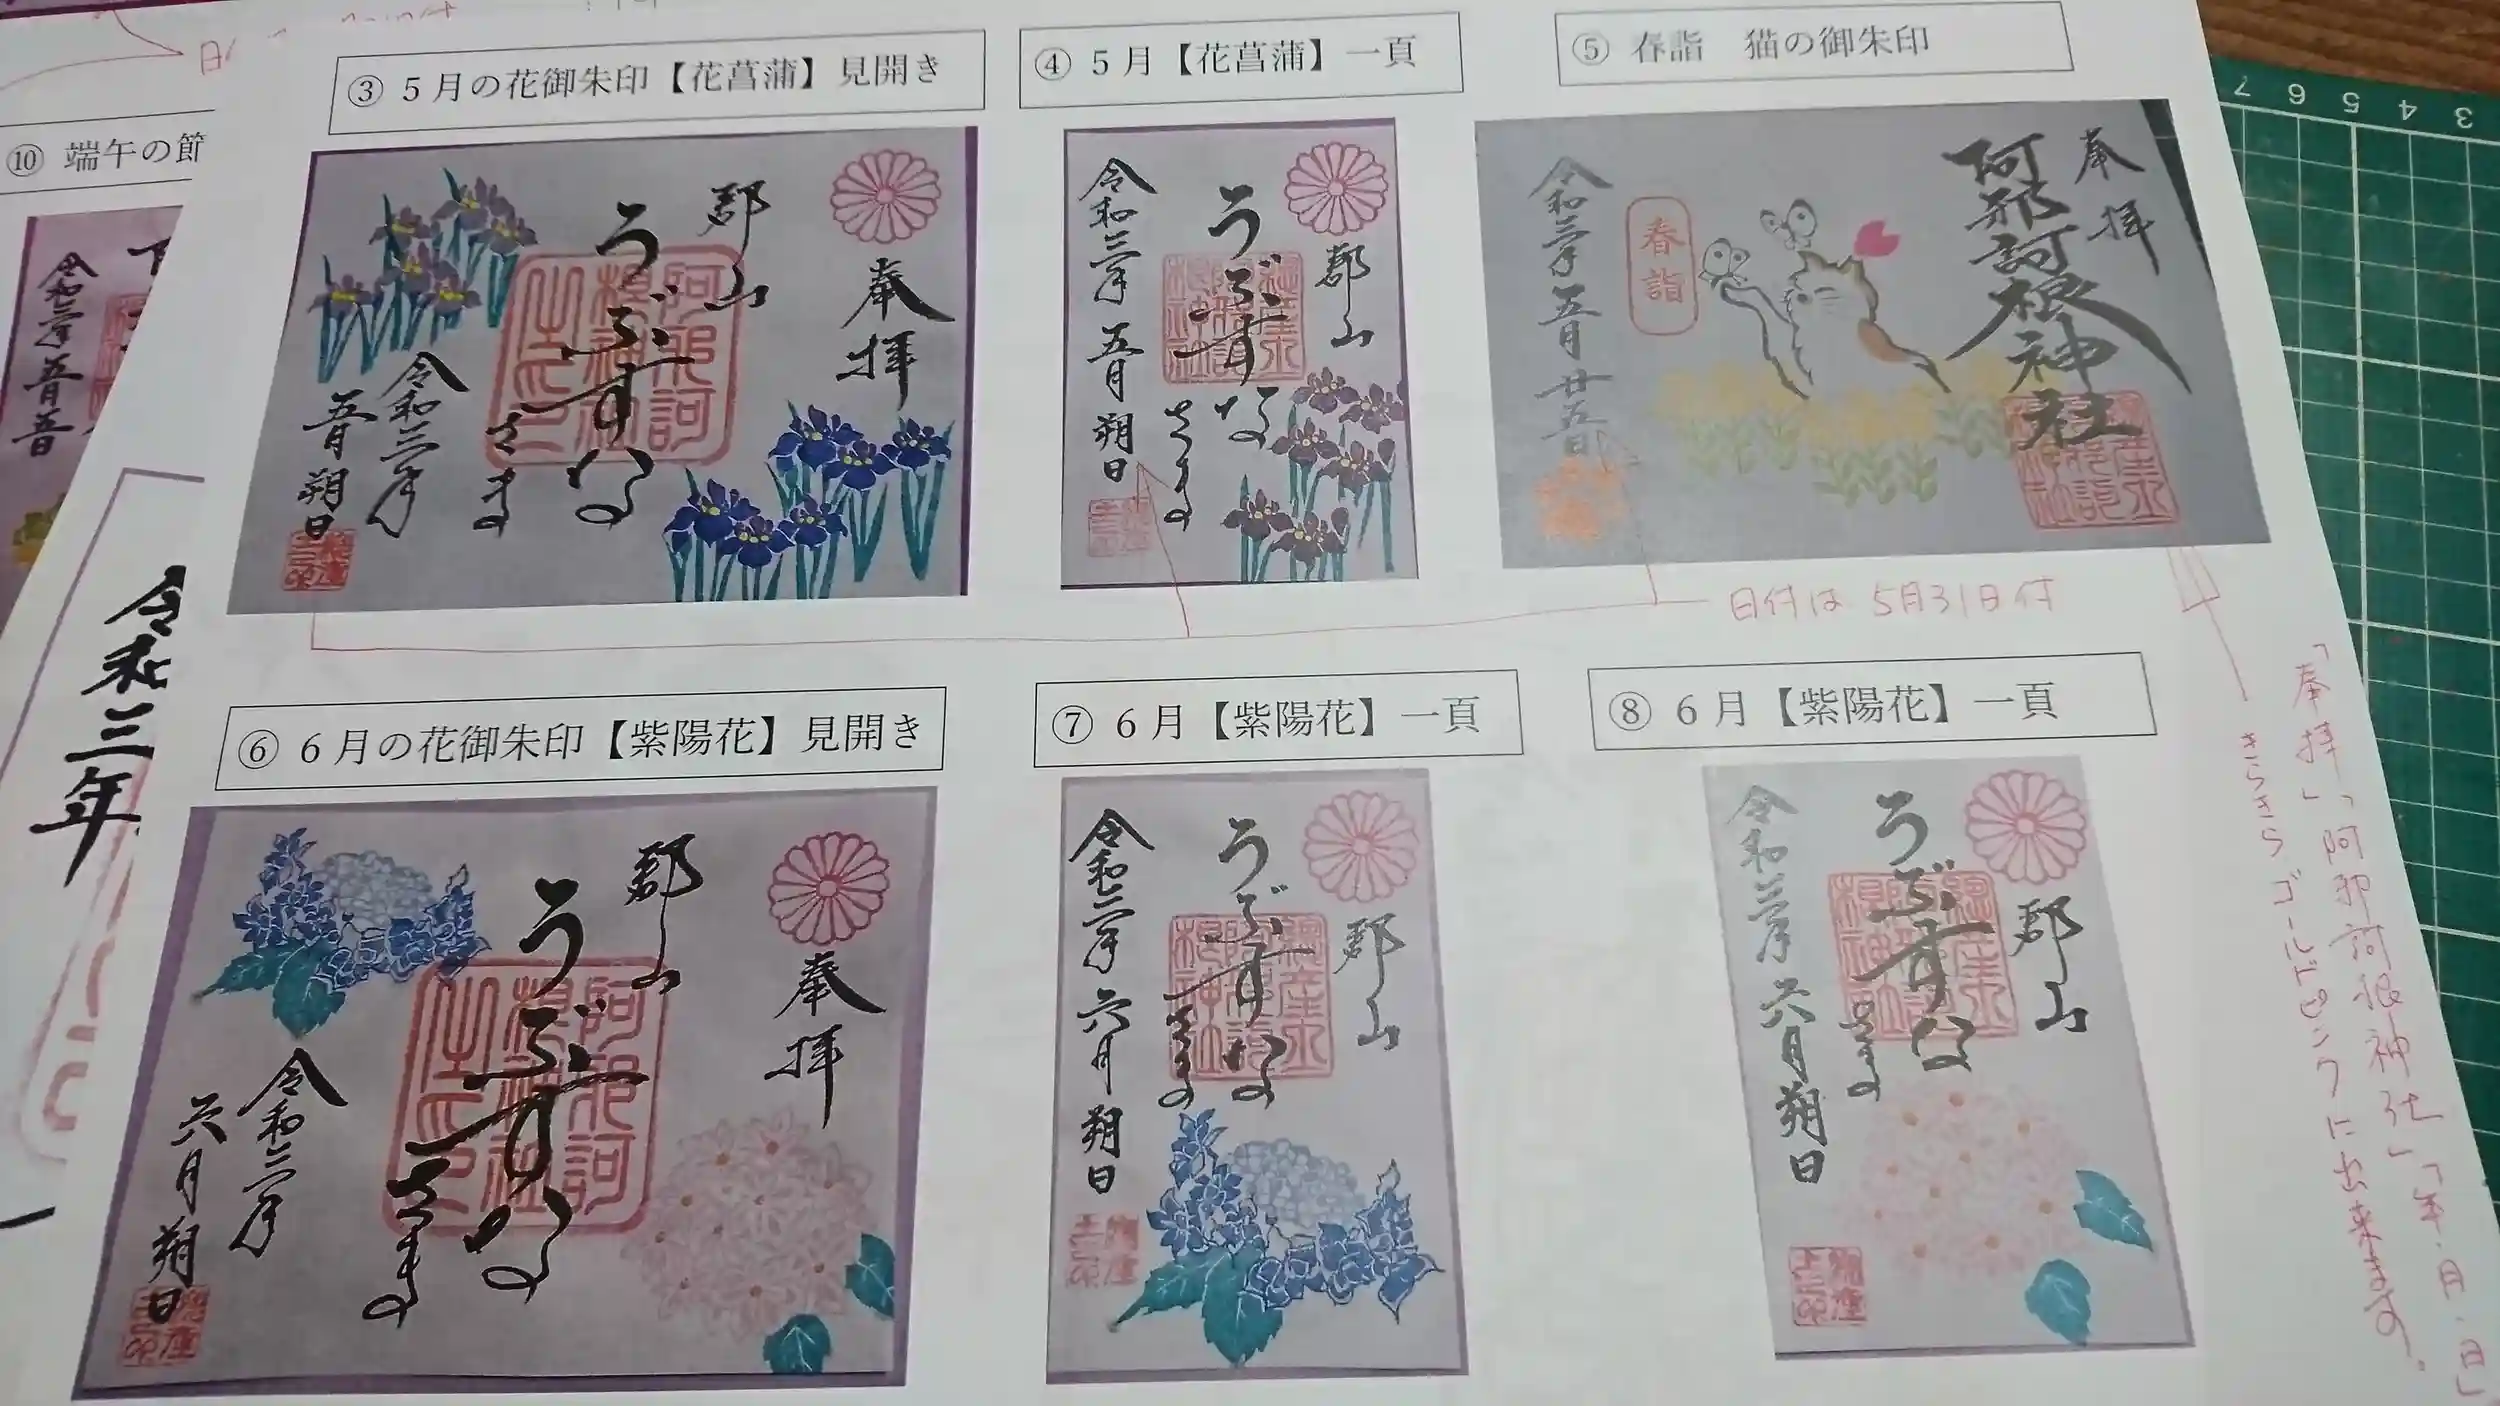 ⑩ 端午の節
令和三年
五月五日
令和三年
③ 5月の花御朱印【花菖蒲】見開き
奉拝
郡山
うぶすな
さま
令和三年
五月朔日
阿邪訶
根神社
之印
④ 5月【花菖蒲】一頁
郡山
うぶすな
さま
令和三年五月朔日
⑤ 春詣 猫の御朱印
奉拝
阿邪訶根神社
春詣
令和三年五月廿五日
日付は 5月31日付
「奉拝」「阿邪訶根神社」「年・月・日」
きらきらゴールドピンクに出来ます。
⑥ 6月の花御朱印【紫陽花】見開き
奉拝
郡山
うぶすな
さま
令和三年
六月朔日
阿邪訶
根神社
之印
⑦ 6月【紫陽花】一頁
郡山
うぶすな
さま
令和三年六月朔日
⑧ 6月【紫陽花】一頁
郡山
うぶすな
さま
令和三年六月朔日
7 6 5 4 3